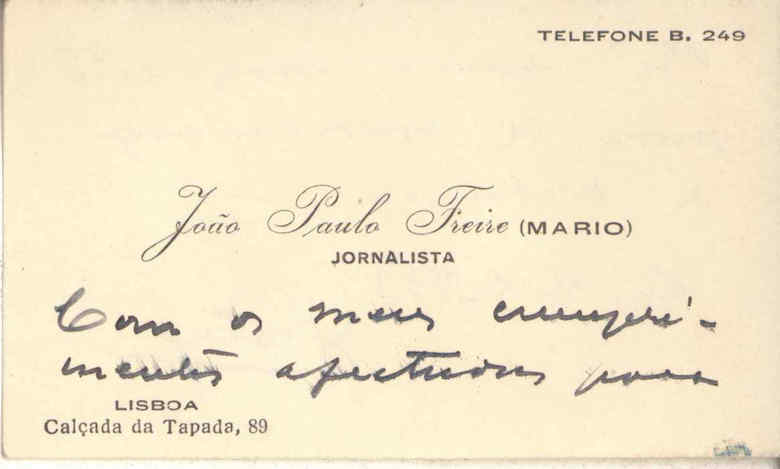 TELEFONE B. 249
João Paulo Freire (MARIO)
JORNALISTA
Com os meus cumpri-
mentos afectuosos para
LISBOA
Calçada da Tapada, 89